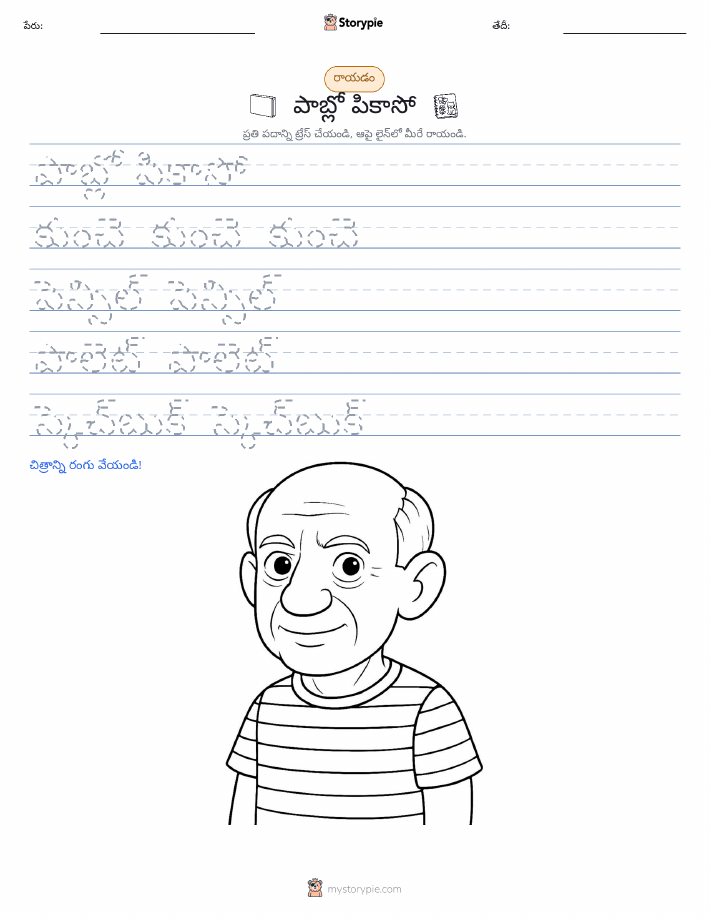 పేరు:
Storypie
తేదీ:
రాయడం
పాబ్లో పికాసో
ప్రతి పదాన్ని ట్రేస్ చేయండి, ఆపై లైన్‌లో మీరే రాయండి.
పాబ్లో పికాసో
కుంచె కుంచె కుంచె
పెన్సిల్ పెన్సిల్
పాలెట్ పాలెట్
స్కెచ్‌బుక్ స్కెచ్‌బుక్
చిత్రాన్ని రంగు వేయండి!
mystorypie.com